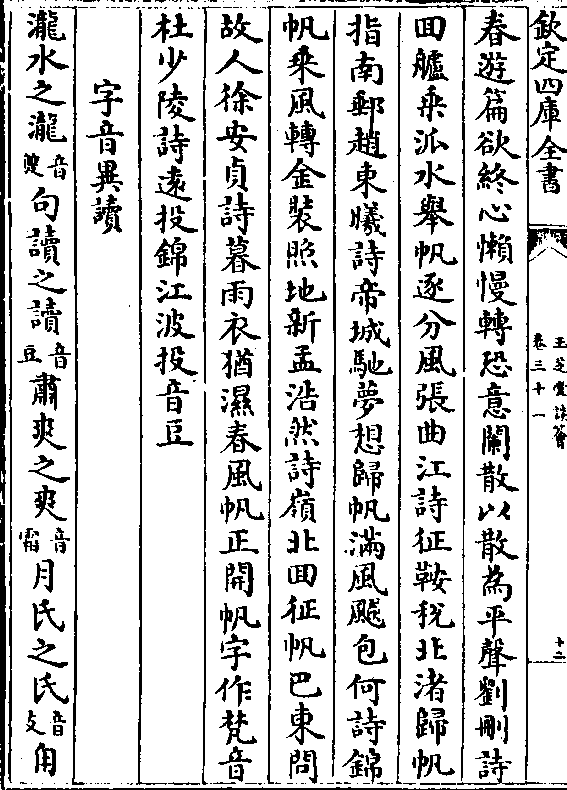 欽定四庫全書
玉芝堂談薈
卷三十一
十二
春遊篇欲終心懶慢轉恐意闌散以散為平聲劉刪詩
回艫乗派水舉帆逐分風張曲江詩征鞍稅北渚歸帆
指南郵趙東曦詩帝城馳夢想歸帆滿風飈包何詩錦
帆乗風轉金裝照地新孟浩然詩嶺北回征帆巴東問
故人徐安貞詩暮雨衣猶濕春風帆正開帆字作梵音
杜少陵詩遠投錦江波投音豆
字音異讀
瀧水之瀧音䕫句讀之讀音豆肅爽之爽音霜月氏之氏音支甪